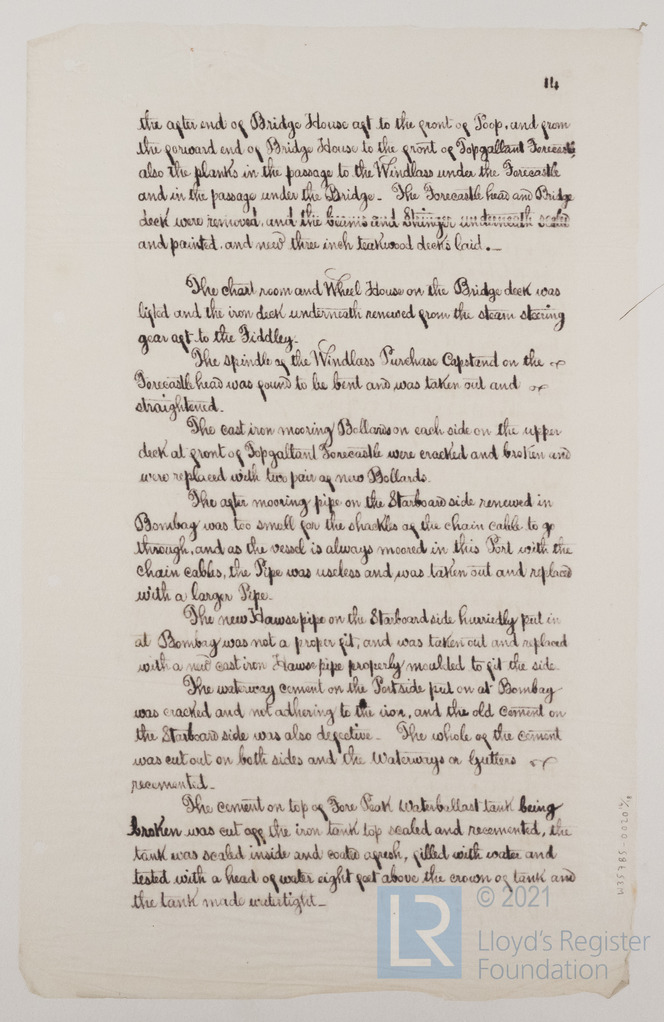 14
the after end of Bridge House aft to the front of Poop, and from
the forward end of Bridge House to the front of Topgallant Forecastle
also the planks in the passage to the Windlass under the Forecastle
and in the passage under the Bridge_ The Forecastle head and Bridge
deck were removed, and the beams and Stringer underneath scaled
and painted, and new three inch teakwood decks laid._
The chart room and Wheel House on the Bridge deck was
lifted and the iron deck underneath renewed from the steam steering
gear aft to the Fiddley_
The spindle of the Windlass Purchase Capstand on the
Forecastle head was found to be bent and was taken out and
straightened_
The cast iron mooring Bollards on each side on the upper
deck at front of Topgallant Forecastle were cracked and broken and
were replaced with two pair of new Bollards.
The after mooring pipe on the Starboard side renewed in
Bombay was too small for the shackles of the chain cable to go
through, and as the vessel is always moored in this Port with the
chain cables, the Pipe was useless and was taken out and replaced
with a larger Pipe_
The new Hawse pipe on the Starboard side hurriedly put in
at Bombay was not a proper fit, and was taken out and replaced
with a new cast iron Hawse pipe properly moulded to fit the side_
The waterway cement on the Port side put on at Bombay
was cracked and not adhering to the iron, and the old cement on
the Starboard side was also defective_ The whole of the cement
was cut out on both sides and the Waterways or Gutters
recemented_
The cement on top of Fore Peak Waterballast tank being
broken was cut off the iron tank top scaled and recemented, the
tank was scaled inside and coated afresh, filled with water and
tested with a head of water eight feet above the crown of tank and
the tank made watertight_
W35785-0020 11/11
LR
© 2021
Lloyd's Register
Foundation